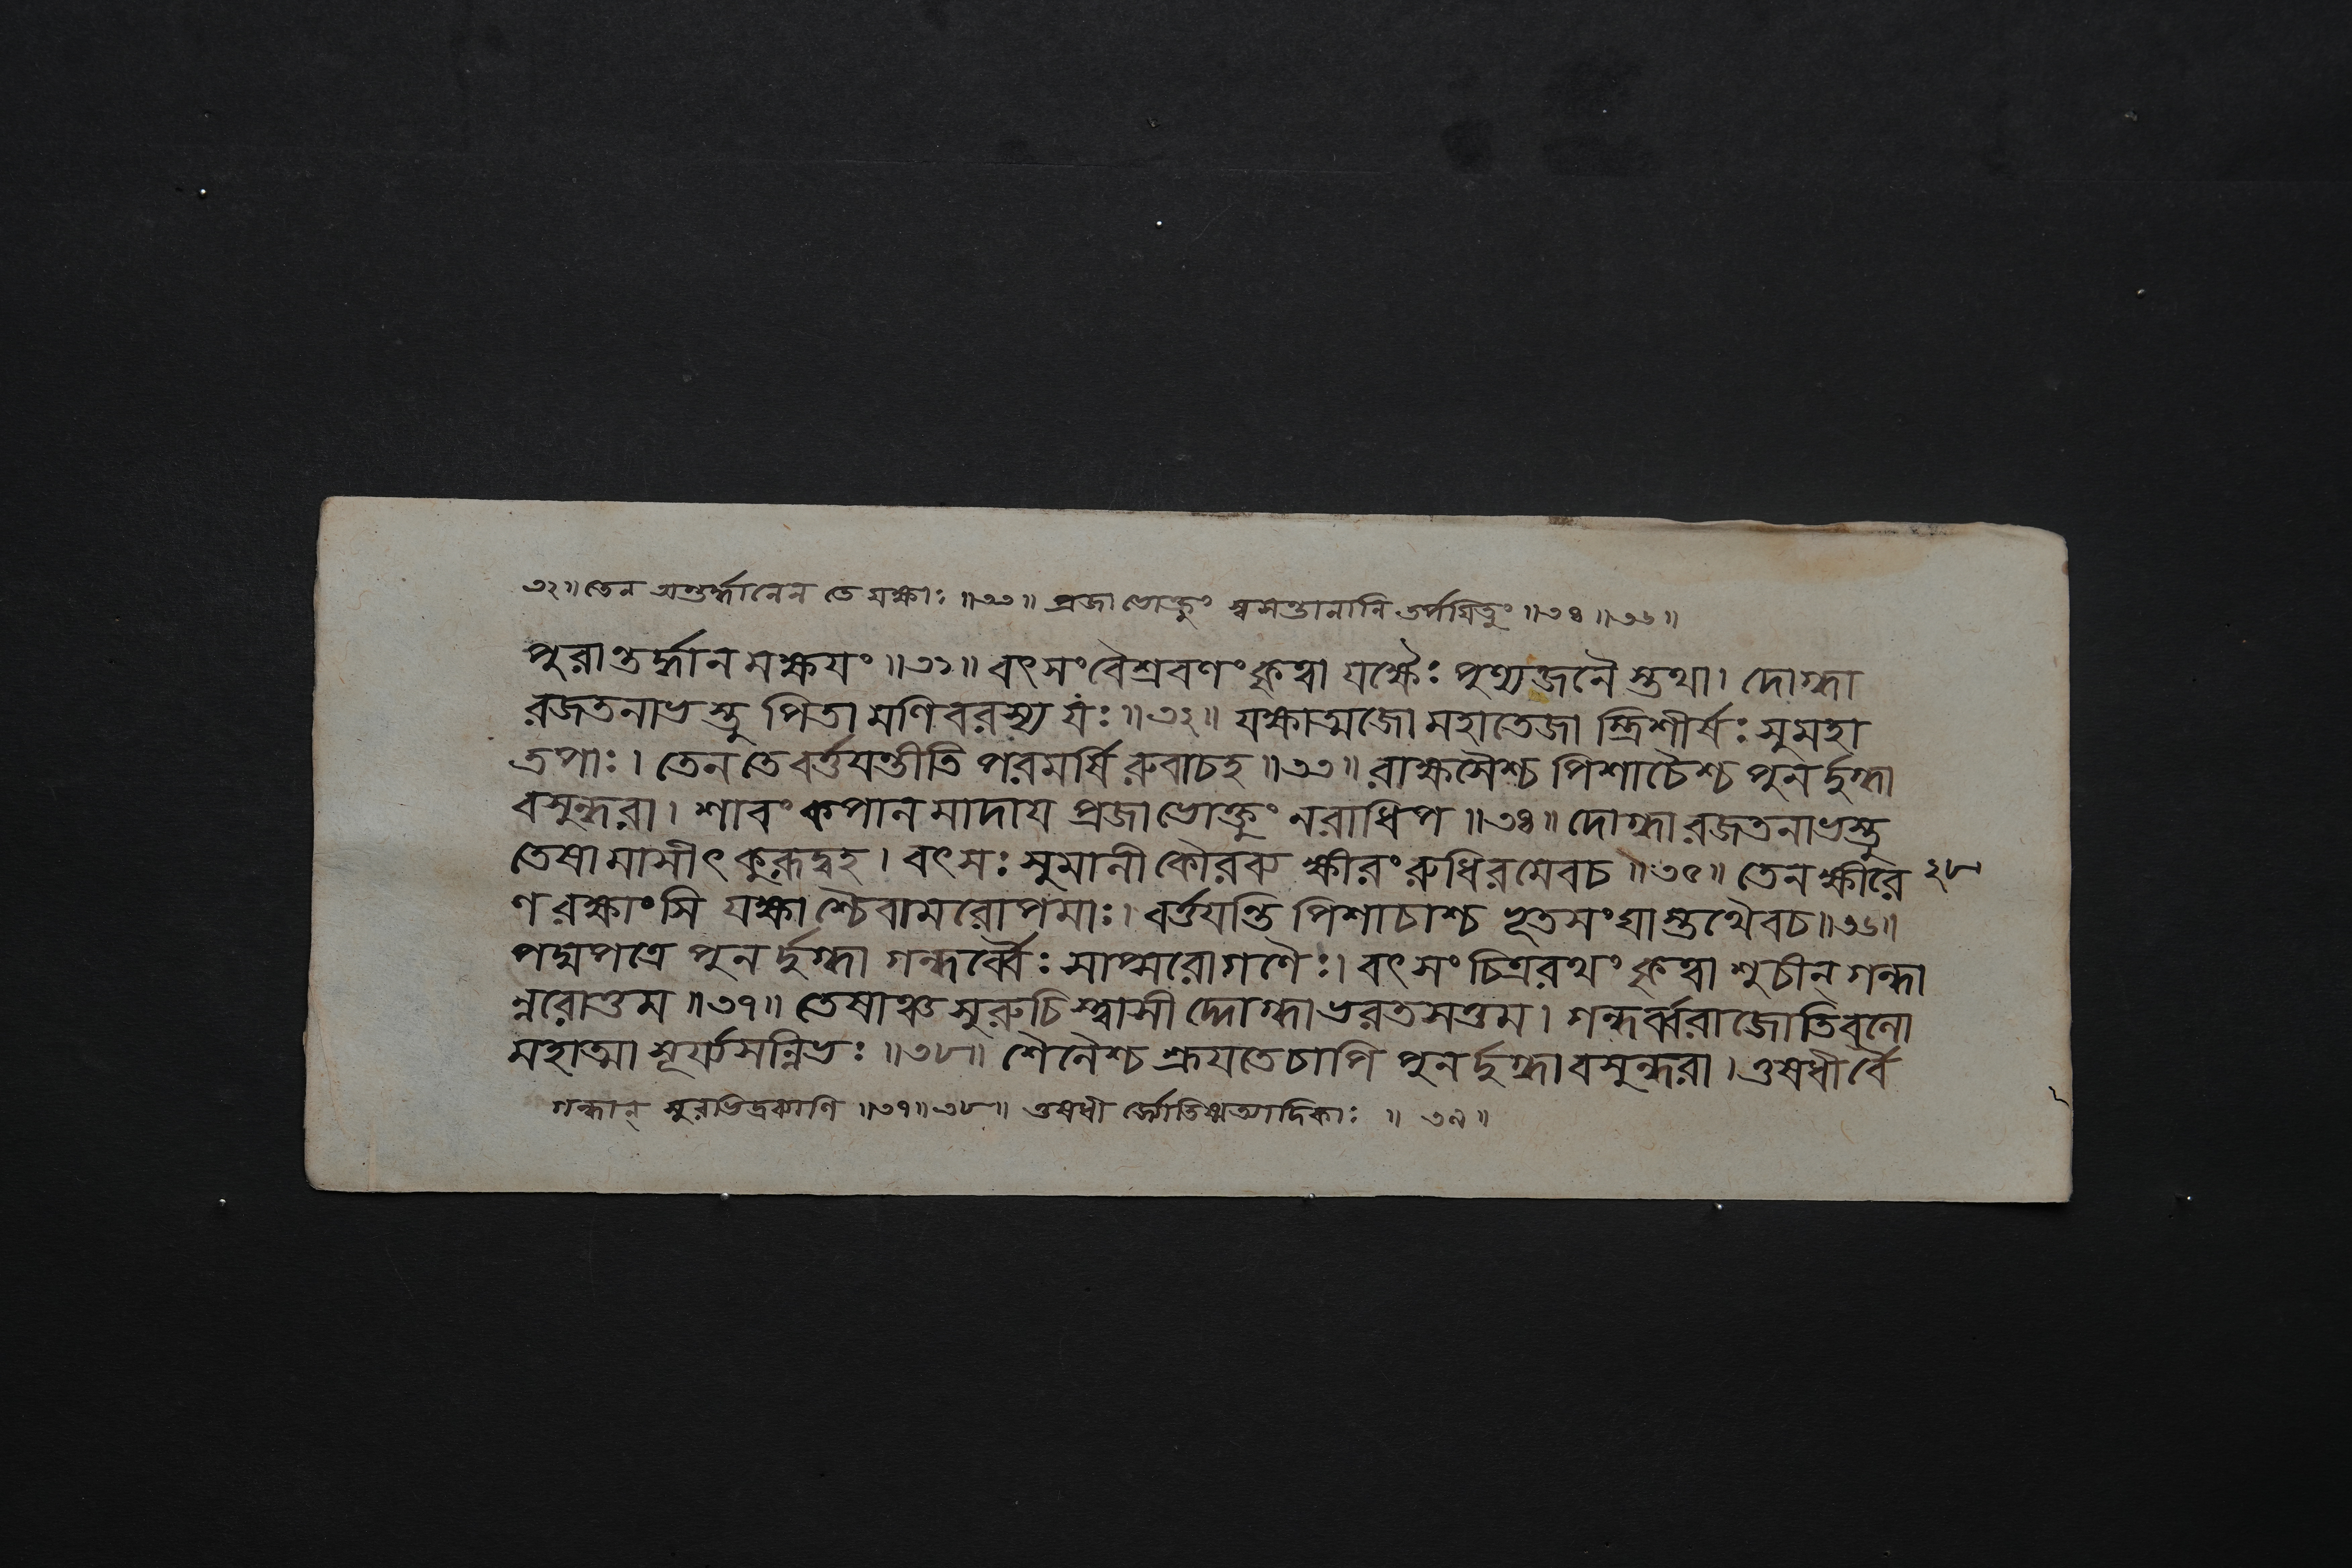 ৩২॥ তেন অন্তর্দ্ধানেন তে যক্ষাঃ ॥৩৩॥ প্রজা ভোক্তুং স্বসন্তানানি তর্পযিতুং ॥৩৪॥৩৬॥
পুরান্তর্দ্ধানমক্ষযং ॥৩১॥ বৎসংবৈশ্রবণং কৃত্বা যক্ষৈঃ পুণ্যজনৈ স্তথা। দোগ্ধা
রজতনাভস্তু পিতা মণিবরস্য যঃ ॥৩২॥ যক্ষাত্মজো মহাতেজা স্ত্রিশীর্ষঃ সুমহা
তপাঃ। তেন তে বর্ত্তযন্তীতি পরমর্ষি রুবাচহ ॥৩৩॥ রাক্ষসৈশ্চ পিশাচৈশ্চ পুনর্দুগ্ধা
বসুন্ধরা। শাবং কপালমাদায প্রজাভোক্তুং নরাধিপ ॥৩৪॥ দোগ্ধা রজতনাভস্তু
তেষামাসীৎ কুরূদ্বহ। বৎসঃ সুমালী কৌরব্য ক্ষীরং রুধিরমেবচ ॥৩৫॥ তেন ক্ষীরে ২৮
ণ রক্ষাংসি যক্ষাশ্চৈবামরোপমাঃ। বর্ত্তযন্তি পিশাচাশ্চ ভূতসংঘাস্তথৈবচ॥৩৬॥
পদ্মপত্রে পুনর্দুগ্ধা গন্ধর্ব্বৈঃ সাপ্সরোগণৈঃ। বৎসং চিত্ররথং কৃত্বা শুচীন্ গন্ধা
ন্নরোত্তম ॥৩৭॥ তেষাঞ্চ সুরুচি স্ত্বাসী দ্দোগ্ধা ভরতসত্তম। গন্ধর্ব্বরাজোতিবলো
মহাত্মা সূর্য্যসন্নিভঃ ॥৩৮॥ শৈলৈশ্চ শ্রূযতেচাপি পুনর্দুগ্ধা বসুন্ধরা। ওষধীর্বৈ
গন্ধান্ সুরভিদ্রব্যাণি ॥৩৭॥৩৮॥ ওষধী র্জ্যোতিষ্মত্যাদিকাঃ ॥ ৩৯॥